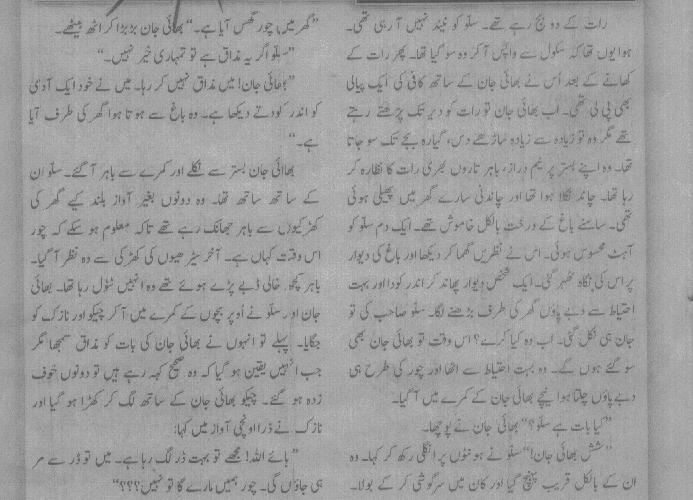 رات کے دو بج رہے تھے۔ سلّو کو نیند نہیں آ رہی تھی۔
ہوا یوں تھا کہ سکول سے واپس آ کر وہ سو گیا تھا۔ پھر رات کے
کھانے کے بعد اُس نے بھائی جان کے ساتھ کافی کی ایک پیالی
بھی پی لی تھی۔ اب بھائی جان تو رات کو دیر تک پڑھتے رہتے
تھے مگر وہ تو زیادہ سے زیادہ ساڑھے دس، گیارہ بجے تک سو جاتا
تھا۔ وہ اپنے بستر پر نیم دراز، باہر تاروں بھری رات کا نظارہ کر
رہا تھا۔ چاند نکلا ہوا تھا اور چاندنی سارے گھر میں پھیلی ہوئی
تھی۔ سامنے باغ کے درخت بالکل خاموش تھے۔ ایک دم سلّو کو
آہٹ محسوس ہوئی۔ اس نے نظریں گھما کر دیکھا اور باغ کی دیوار
پر اس کی نگاہ ٹھہر گئی۔ ایک شخص دیوار پھاند کر اندر کودا اور بہت
احتیاط سے دبے پاؤں گھر کی طرف بڑھنے لگا۔ سلّو صاحب کی تو
جان ہی نکل گئی۔ اب وہ کیا کرے؟ اس وقت تو بھائی جان بھی
سو گئے ہوں گے۔ وہ بہت احتیاط سے اٹھا اور چور کی طرح ہی
دبے پاؤں چلتا ہوا نیچے بھائی جان کے کمرے میں آ گیا۔
”کیا بات ہے سلّو؟“ بھائی جان نے پوچھا۔
”شش بھائی جان!“ سلّو نے ہونٹوں پر انگلی رکھ کر کہا۔ وہ
ان کے بالکل قریب پہنچ گیا اور کان میں سرگوشی کر کے بولا۔
”گھر میں چور گھس آیا ہے۔“ بھائی جان ہڑبڑا کر اٹھ بیٹھے۔
”سلّو اگر یہ مذاق ہے تو تمہاری خیر نہیں۔“
”بھائی جان! میں مذاق نہیں کر رہا۔ میں نے خود ایک آدمی
کو اندر کودتے دیکھا ہے۔ وہ باغ سے ہوتا ہوا گھر کی طرف آیا
ہے۔“
بھائی جان بستر سے نکلے اور کمرے سے باہر آ گئے۔ سلّو ان
کے ساتھ ساتھ تھا۔ وہ دونوں بغیر آواز بلند کیے گھر کی
کھڑکیوں سے باہر جھانک رہے تھے تاکہ معلوم ہو سکے کہ چور
اس وقت کہاں ہے۔ آخر سیڑھیوں کی کھڑکی سے وہ نظر آ گیا۔
باہر کچھ خالی ڈبے پڑے ہوئے تھے وہ انہیں ٹٹول رہا تھا۔ بھائی
جان اور سلّو نے اُوپر بچوں کے کمرے میں آ کر چیکو اور نازک کو
جگایا۔ پہلے تو انہوں نے بھائی جان کی بات کو مذاق سمجھا مگر
جب انہیں یقین ہو گیا کہ وہ صحیح کہہ رہے ہیں تو دونوں خوف
زدہ ہو گئے۔ چیکو بھائی جان کے ساتھ لگ کر کھڑا ہو گیا اور
نازک نے ذرا اونچی آواز میں کہا:
”ہائے اللہ! مجھے تو بہت ڈر لگ رہا ہے۔ میں تو ڈر سے مر
ہی جاؤں گی۔ چور ہمیں مارے گا تو نہیں؟؟؟“